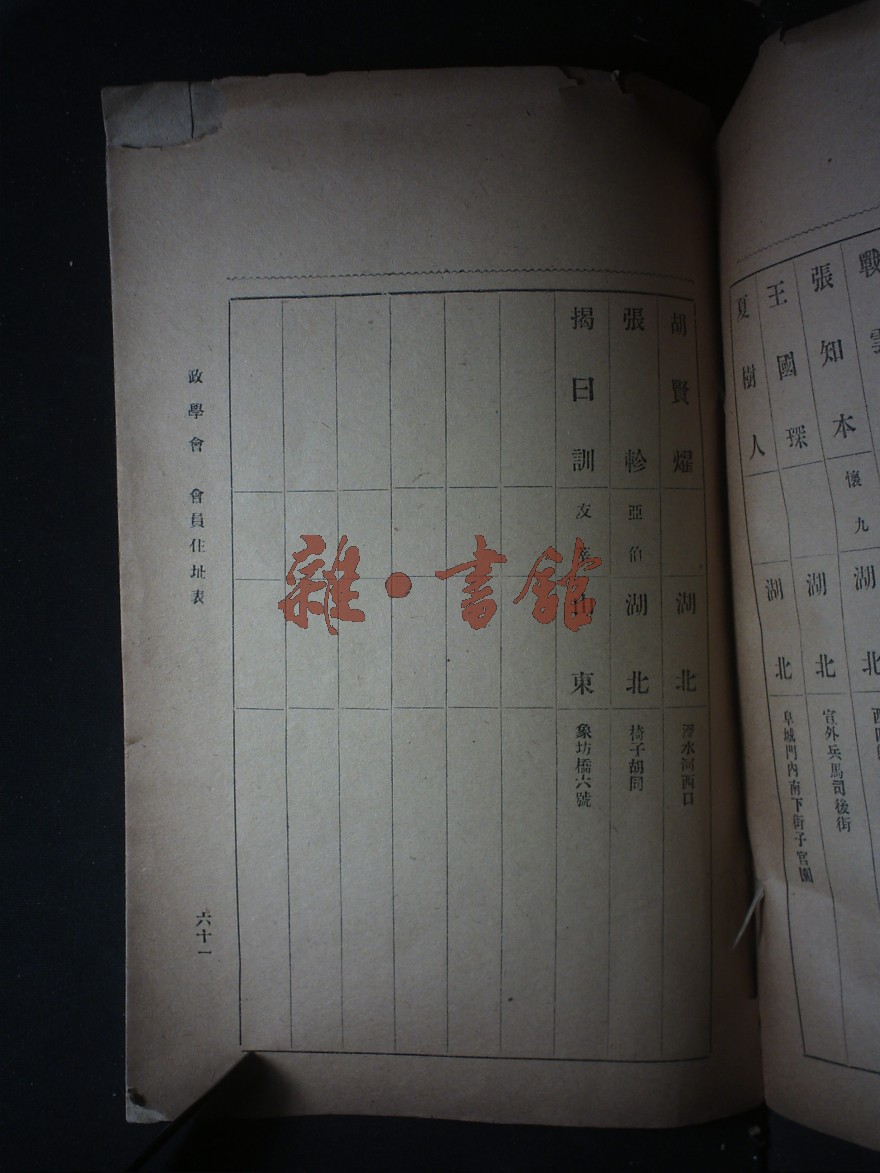 張知本
懷九
湖北
王國琛
湖北
宣外兵馬司後街
夏樹人
湖北
阜城門內南下街子官園
胡賢燿
湖北
浮水河西口
張軫
亞伯
湖北
椅子胡同
揭日訓
友
山東
象坊橋六號
政學會 會員住址表
六十一
雜·書館